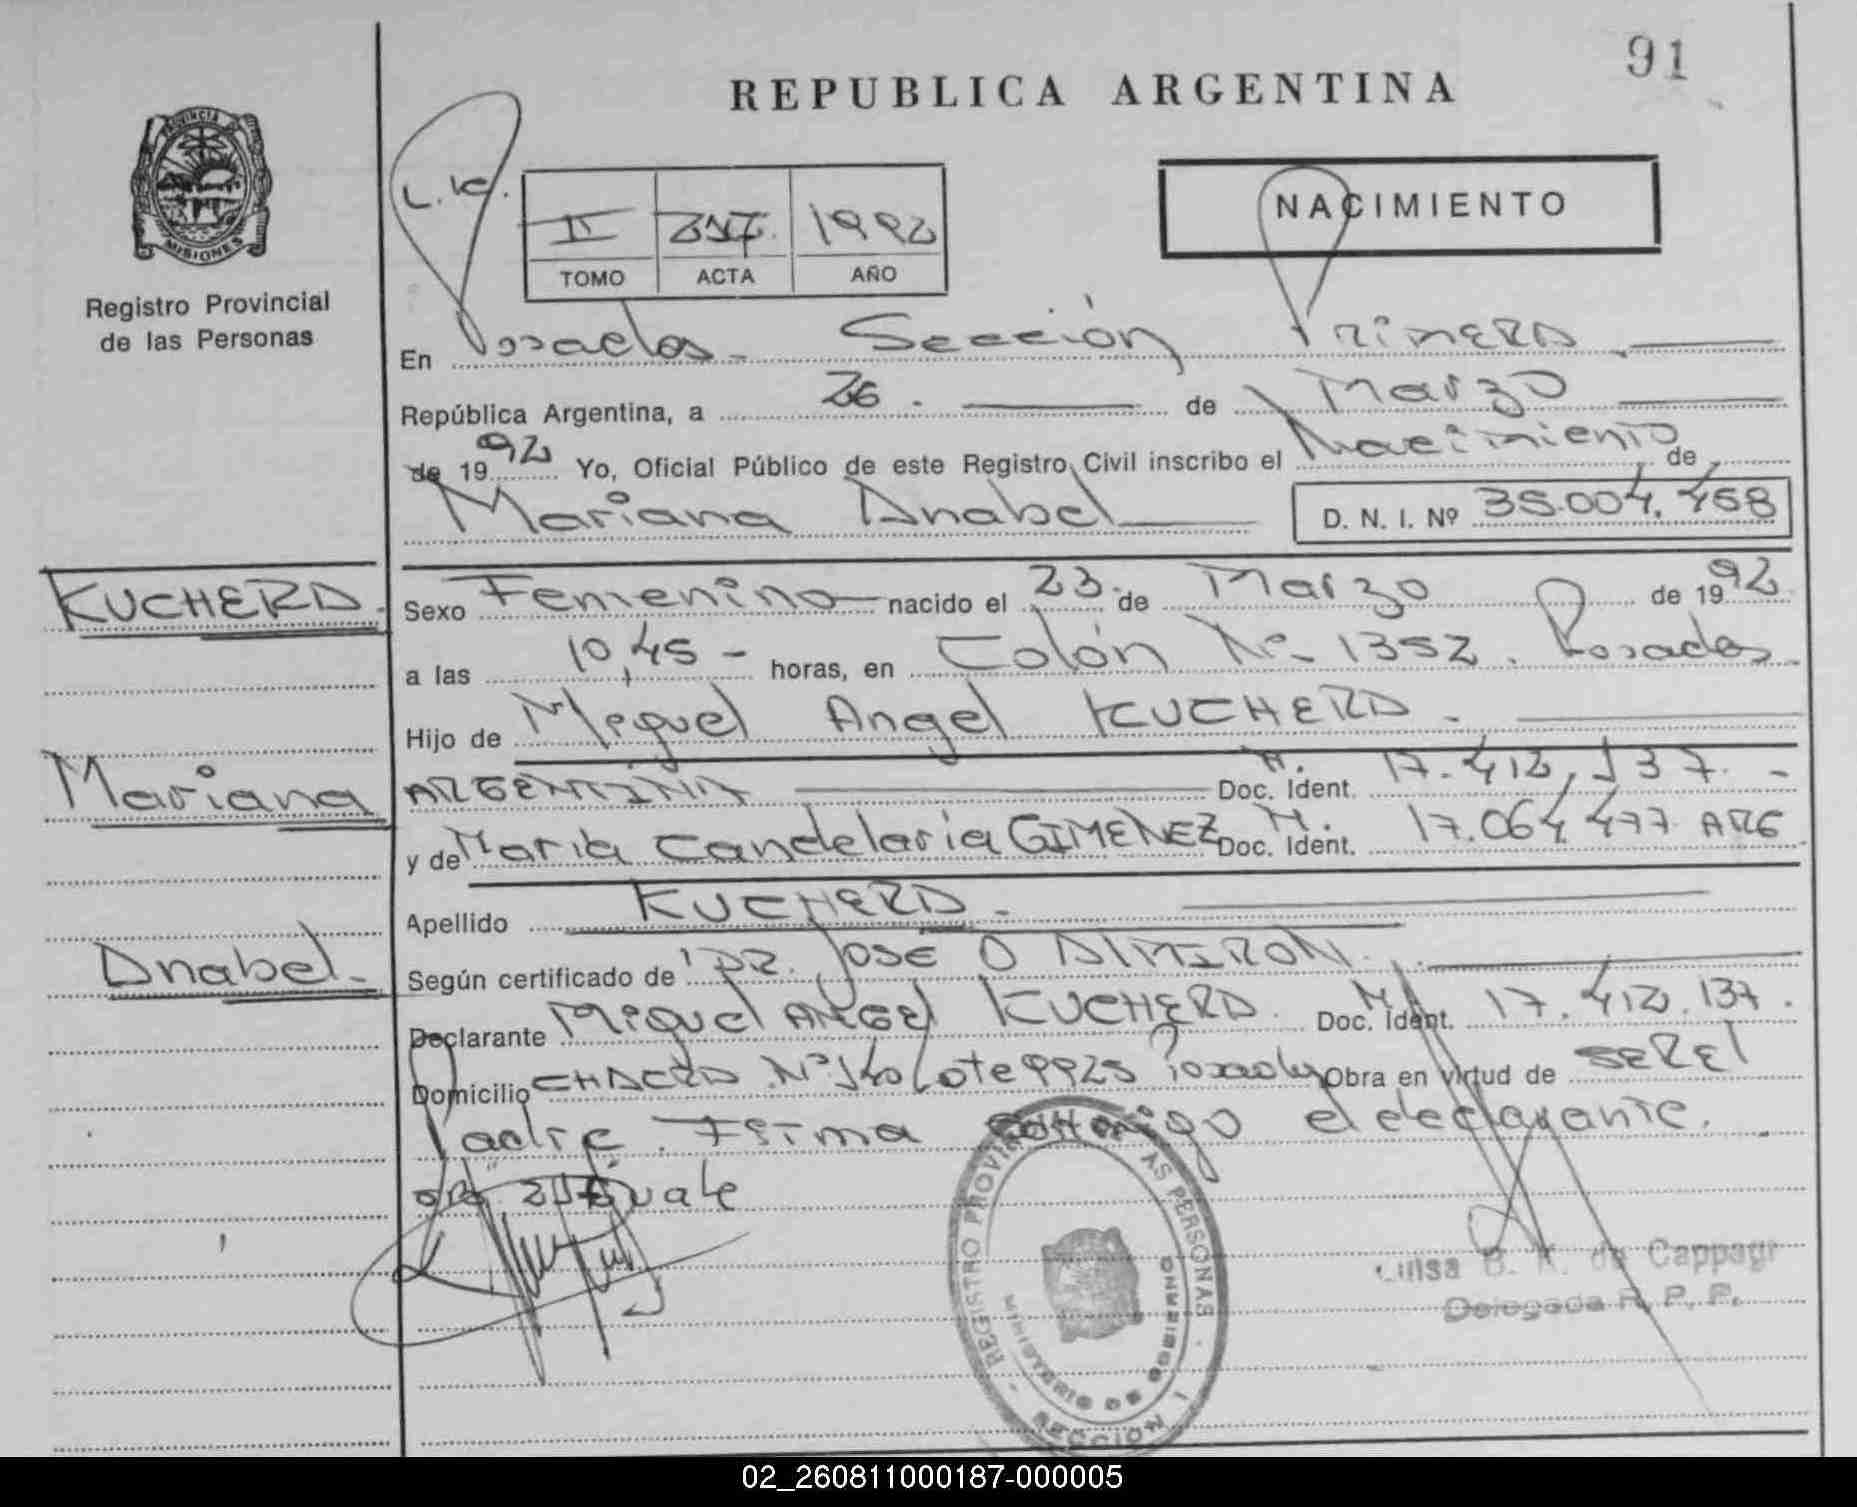 91
REPUBLICA ARGENTINA
PROVINCIA DE
MISIONES
Registro Provincial
de las Personas
II 1992
TOMO ACTA AÑO
NACIMIENTO
En Posadas - Sección Primera
República Argentina, a 26. de Marzo
de 1992 Yo, Oficial Público de este Registro Civil inscribo el Nacimiento de
Mariana Anabel D. N. I. Nº 35.004.458
KUCHERA. Sexo Femenino nacido el 23 de Marzo de 1992.
a las 10,45 - horas, en Colón Nº 1352. Posadas
Hijo de Miguel Angel KUCHERA.
Mariana ARGENTINA Doc. Ident. M. 17.412.137. -
y de Maria Candelaria GIMENEZ Doc. Ident. M. 17.064.477 ARG
Apellido KUCHERA.
Anabel. Según certificado de DR. JOSE O ALMIRON.
Declarante Miguel ANGEL KUCHERA. Doc. Ident. M 17.412.137.
Domicilio CHACRA Nº 140 Lote 9925 Posadas Obra en virtud de SER El
Padre. Firma conmigo el declarante.
vale
REGISTRO PROVINCIAL DE LAS PERSONAS
MINISTERIO DE GOBIERNO
SECCION 1
Luisa B. K. de
Delegada R. P. P.
02_260811000187-000005